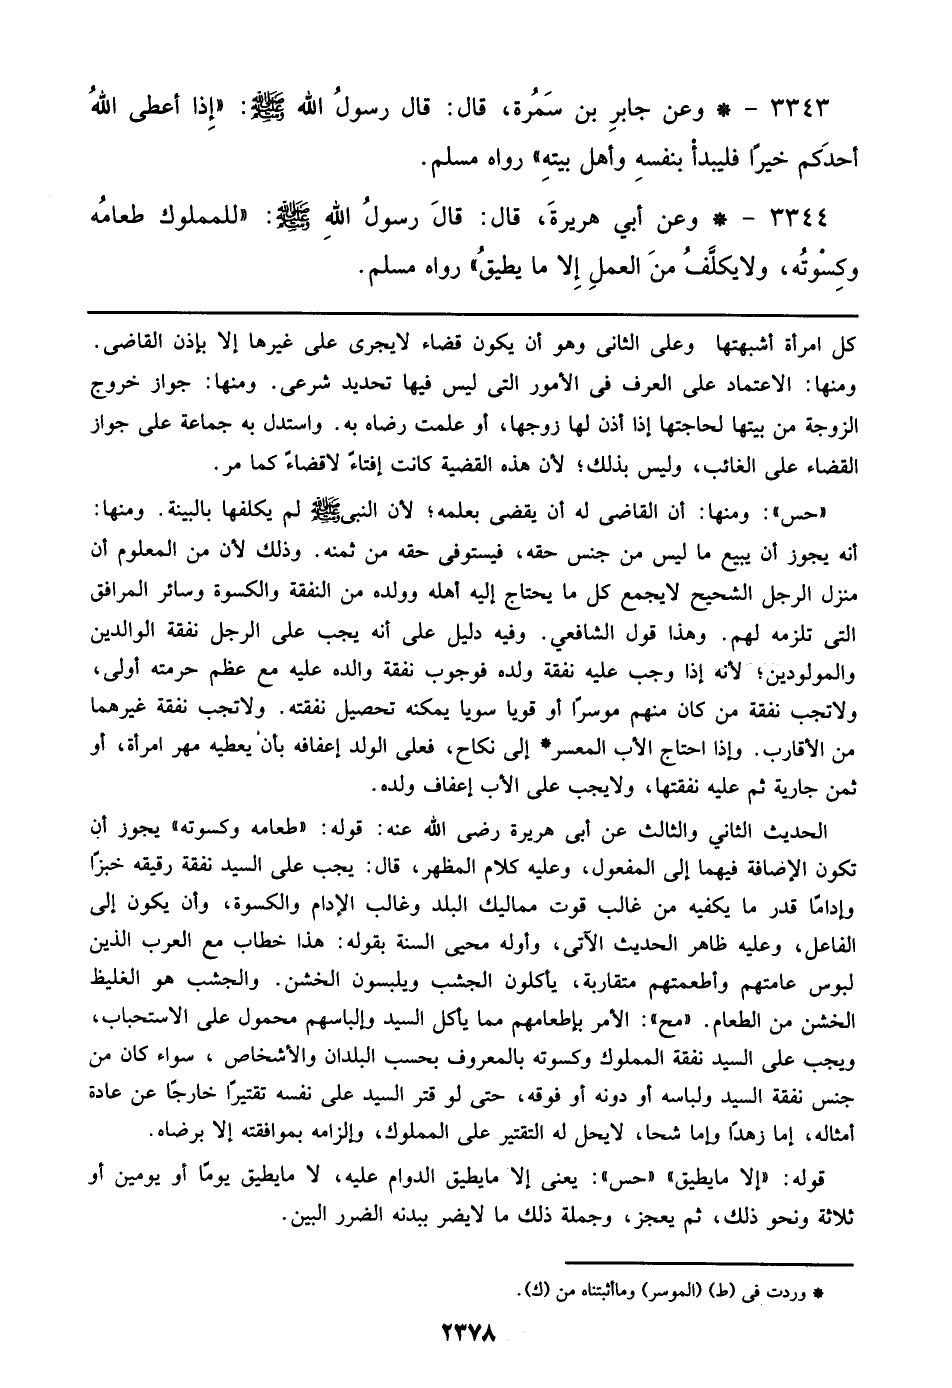 ٣٣٤٣ – * وعن جابرِ بن سَمُرة، قال: قال رسولُ الله ﷺ: «إِذا أعطى اللهُ
أحدَكم خيرًا فليبدأْ بنفسهِ وأهل بيتهِ» رواه مسلم.
٣٣٤٤ – * وعن أبي هريرةَ، قال: قالَ رسولُ اللهِ ﷺ: «للمملوك طعامُه
وكِسْوتُه، ولايكلَّفُ منَ العملِ إِلا ما يطيقُ» رواه مسلم.
كل امرأة أشبهتها وعلى الثانى وهو أن يكون قضاء لايجرى على غيرها إلا بإذن القاضى.
ومنها: الاعتماد على العرف فى الأمور التى ليس فيها تحديد شرعى. ومنها: جواز خروج
الزوجة من بيتها لحاجتها إذا أذن لها زوجها، أو علمت رضاه به. واستدل به جماعة على جواز
القضاء على الغائب، وليس بذلك؛ لأن هذه القضية كانت إفتاءً لاقضاءً كما مر.
«حس»: ومنها: أن القاضى له أن يقضى بعلمه؛ لأن النبىﷺ لم يكلفها بالبينة. ومنها:
أنه يجوز أن يبيع ما ليس من جنس حقه، فيستوفى حقه من ثمنه. وذلك لأن من المعلوم أن
منزل الرجل الشحيح لايجمع كل ما يحتاج إليه أهله وولده من النفقة والكسوة وسائر المرافق
التى تلزمه لهم. وهذا قول الشافعي. وفيه دليل على أنه يجب على الرجل نفقة الوالدين
والمولودين؛ لأنه إذا وجب عليه نفقة ولده فوجوب نفقة والده عليه مع عظم حرمته أولى،
ولاتجب نفقة من كان منهم موسرًا أو قويا سويا يمكنه تحصيل نفقته. ولاتجب نفقة غيرهما
من الأقارب. وإذا احتاج الأب المعسر* إلى نكاح، فعلى الولد إعفافه بأن يعطيه مهر امرأة، أو
ثمن جارية ثم عليه نفقتها، ولايجب على الأب إعفاف ولده.
الحديث الثاني والثالث عن أبى هريرة رضى الله عنه: قوله: «طعامه وكسوته» يجوز أن
تكون الإضافة فيهما إلى المفعول، وعليه كلام المظهر، قال: يجب على السيد نفقة رقيقه خبزًا
وإدامًا قدر ما يكفيه من غالب قوت مماليك البلد وغالب الإدام والكسوة، وأن يكون إلى
الفاعل، وعليه ظاهر الحديث الآتى، وأوله محيى السنة بقوله: هذا خطاب مع العرب الذين
لبوس عامتهم وأطعمتهم متقاربة، يأكلون الجشب ويلبسون الخشن. والجشب هو الغليظ
الخشن من الطعام. «مح»: الأمر بإطعامهم مما يأكل السيد وإلباسهم محمول على الاستحباب،
ويجب على السيد نفقة المملوك وكسوته بالمعروف بحسب البلدان والأشخاص ، سواء كان من
جنس نفقة السيد ولباسه أو دونه أو فوقه، حتى لو قتر السيد على نفسه تقتيرًا خارجًا عن عادة
أمثاله، إما زهدًا وإما شحا، لايحل له التقتير على المملوك، وإلزامه بموافقته إلا برضاه.
قوله: «إلا مايطيق» «حس»: يعنى إلا مايطيق الدوام عليه، لا مايطيق يومًا أو يومين أو
ثلاثة ونحو ذلك، ثم يعجز، وجملة ذلك ما لايضر ببدنه الضرر البين.
* وردت فى (ط) (الموسر) وماأثبتناه من (ك).
٢٣٧٨